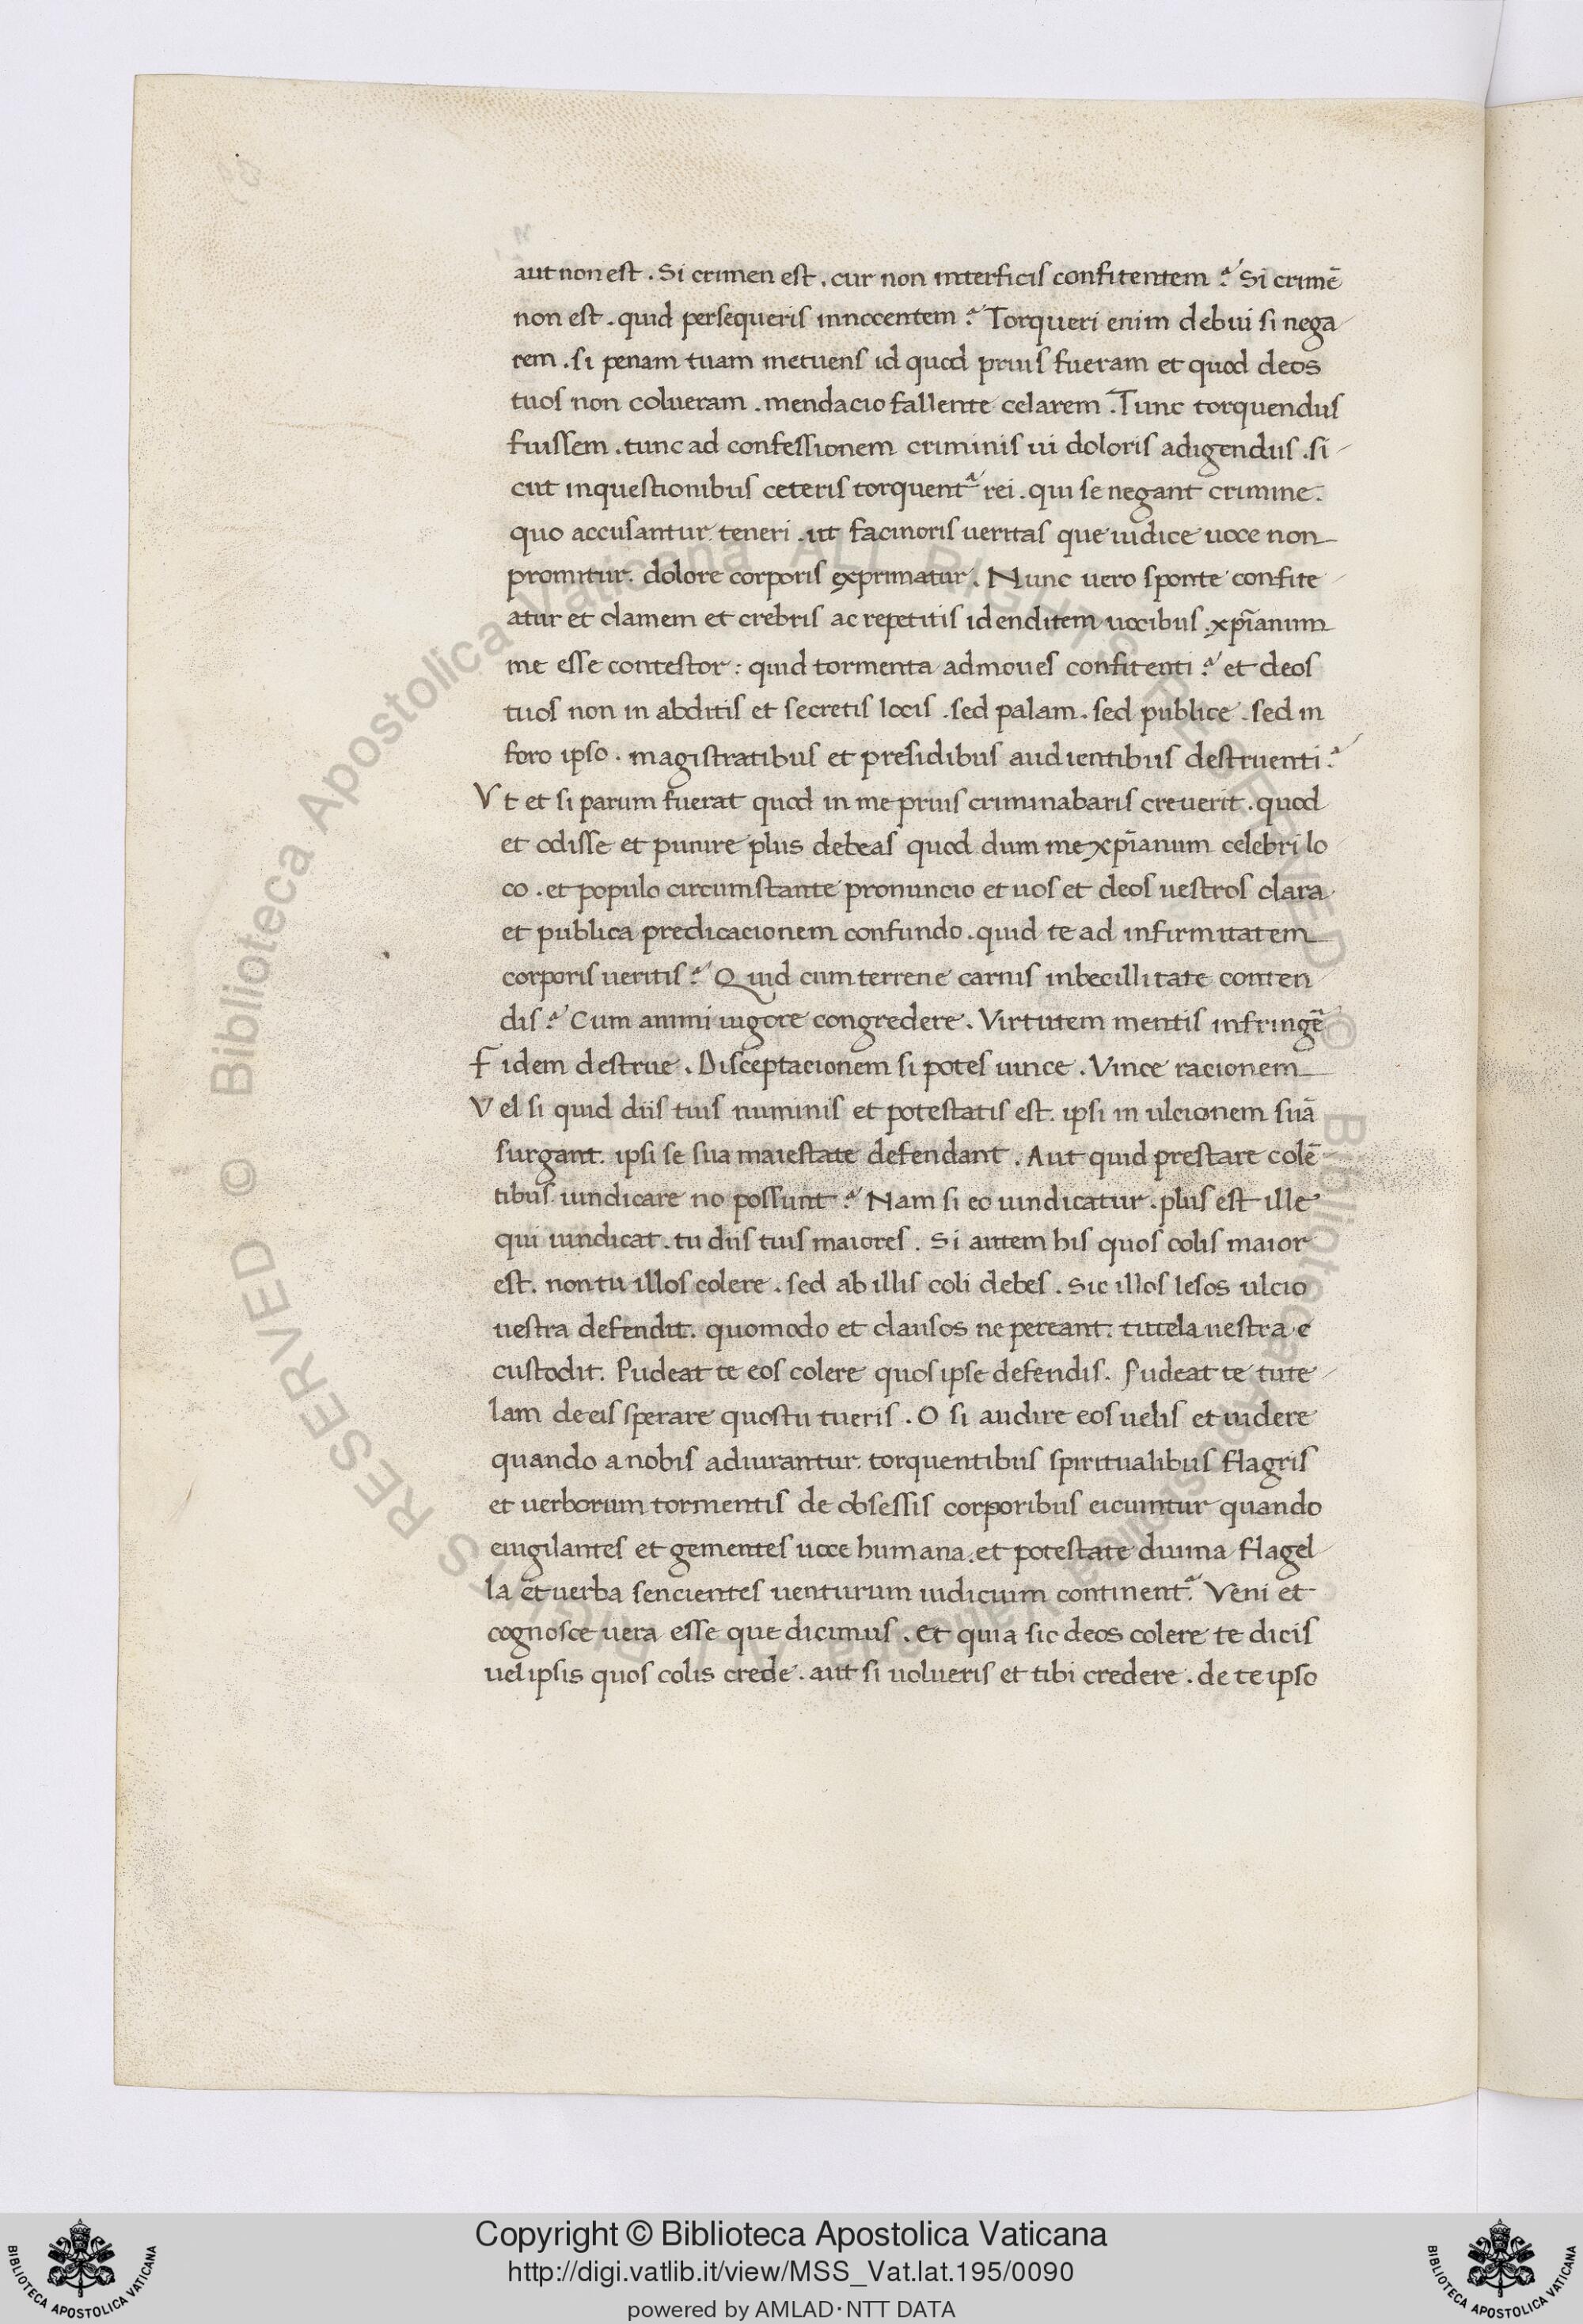 aut non est . Si crimen est . cur non interficis confitentem ? Si crimē
non est . quid persequeris innocentem ? Torqueri enim debui si nega
rem . si penam tuam metuens id quod prius fueram et quod deos
tuos non colueram . mendacio fallente celarem . Tunc torquendus
fuissem . tunc ad confessionem criminis ui doloris adigendus . si
cut in questionibus ceteris torquent᷑ rei . qui se negant crimine .
quo accusantur teneri . ut facinoris ueritas que iudice uoce non
promitur . dolore corporis exprimatur . Nunc uero sponte confite
atur et clamem et crebris ac repetitis idenditem uocibus . xp̄ianum
me esse contestor : quid tormenta admoues confitenti ? et deos
tuos non in abditis et secretis locis . sed palam . sed publice . sed in
foro ipso . magistratibus et presidibus audientibus destruenti ?
Vt et si parum fuerat quod in me prius criminabaris creuerit . quod
et odisse et punire plus debeas quod dum me xp̄ianum celebri lo
co . et populo circumstante pronuncio et uos et deos uestros clara
et publica predicacionem confundo . quid te ad infirmitatem
corporis ueritis ? Quid cum terrene carnis inbecillitate conten
dis ? Cum animi uigore congredere . Virtutem mentis infringē
Fidem destrue . Disceptacionem si potes uince . Vince racionem
Vel si quid diis tuis numinis et potestatis est . ipsi in ulcionem suā
surgant . ipsi se sua maiestate defendant . Aut quid prestare colē
tibus uindicare no possunt ? Nam si eo uindicatur . plus est ille
qui uindicat . tu diis tuis maiores . Si autem his quos colis maior
est . non tu illos colere . sed ab illis coli debes . Sic illos lesos ulcio
uestra defendit . quomodo et clausos ne pereant . tutela uestra e
custodit . Pudeat te eos colere quos ipse defendis . Pudeat te tute
lam de eis sperare quos tu tueris . O si audire eos uelis et uidere
quando a nobis adiurantur . torquentibus spiritualibus flagris
et uerborum tormentis de obsessis corporibus eiciuntur quando
eiugilantes et gementes uoce humana . et potestate diuina flagel
la et uerba sencientes uenturum iudicium continent᷑ . Veni et
cognosce uera esse que dicimus . et quia sic deos colere te dicis
uel ipsis quos colis crede . aut si uolueris et tibi credere . de te ipso
Biblioteca Apostolica Vaticana ALL RIGHTS RESERVED © Biblioteca Apostolica Vaticana ALL RIGHTS RESERVED ©
Copyright © Biblioteca Apostolica Vaticana
http://digi.vatlib.it/view/MSS_Vat.lat.195/0090
powered by AMLAD·NTT DATA
BIBLIOTECA APOSTOLICA VATICANA
BIBLIOTECA APOSTOLICA VATICANA